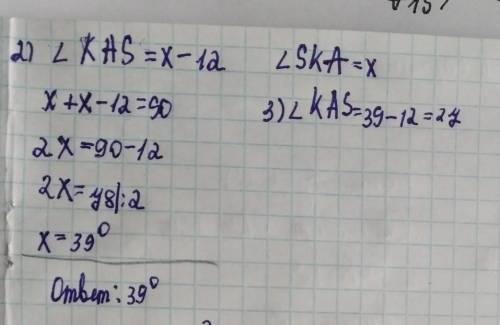 2) ∠KAS = x - 12
∠SKA = x
x + x - 12 = 90
3) ∠KAS = 39 - 12 = 27
2x = 90 - 12
2x = 78 |: 2
x = 39°
Ответ: 39°